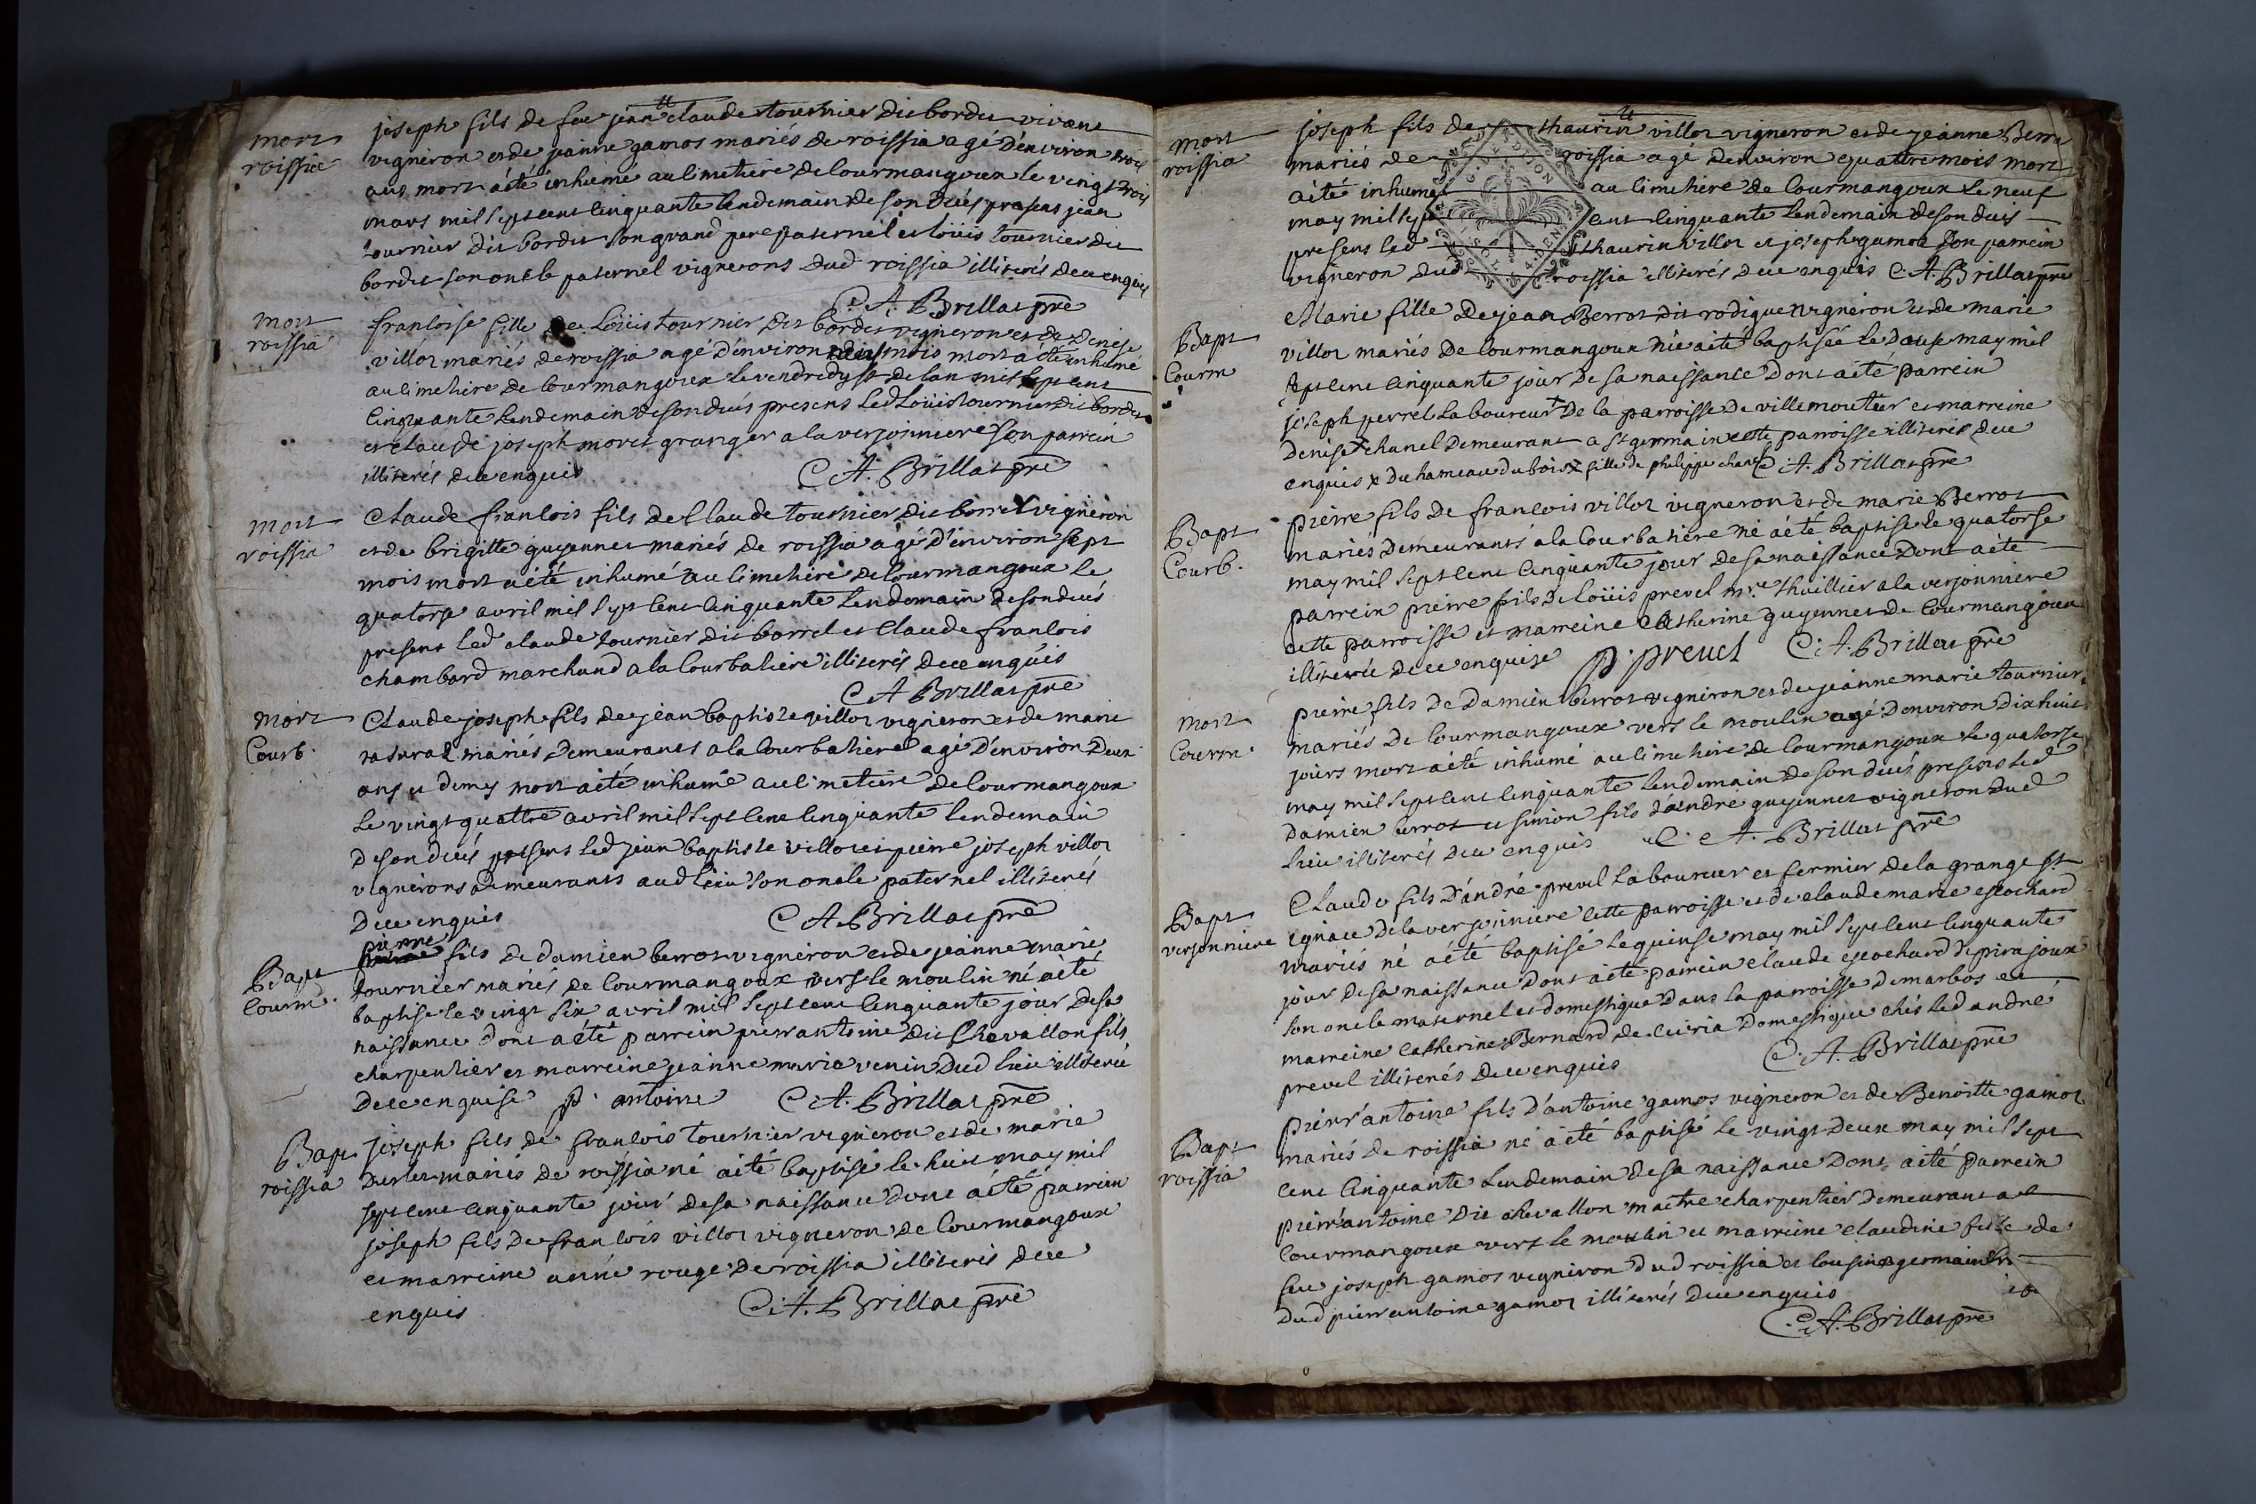 mort
roissia
joseph fils de feu jean claude tournier dit bordet vivant
vigneron et de jeanne gamos mariés de roissia agé d'environ trois
ans mort a été inhumé au cimetiere de Courmangoux le vingt trois
mars mil sept cent cinquante lendemain de son deces presens jean
tournier dit bordet son grand pere paternel et loüis tournier dit
bordet son oncle paternel vignerons dud roissia illiterés de ce enquis
C. A. Brillat pre
mort
roissia
francoise fille de Loüis tournier dit bordet vigneron et de Denise
villor mariés de roissia agé d'environ mois mort a été inhumé
au cimetiere de Courmangoux le vendredy st de lan mil sept cent
Cinquante lendemain de son deces presens led Loüis tournier dit bordet
et claude joseph moret granger a la verjonniere son parrein
illiterés de ce enquis C. A. Brillat pre
mort
roissia
Claude francois fils de Claude tournier dit borrel vigneron
et de brigitte guyennet mariés de roissia agé d'environ sept
mois mort a été inhumé au cimetiere de Courmangoux le
quatorse avril mil sept cent cinquante lendemain de son deces
presens led claude tournier dit borrel et Claude francois
chambard marchand a la Courbatiere illiterés de ce enquis
C A Brillat pre
mort
Courb.
Claude joseph fils de jean baptiste villor vigneron et de marie
mariés demeurants a la Courbatiere agé d'environ deux
ans et demy mort a été inhumé au cimetiere de Courmangoux
le vingt quattre avril mil sept cent cinquante lendemain
de son deces presens led jean baptiste villor et pierre joseph villor
vignerons demeurants aud lieu son oncle paternel illiterés
de ce enquis C A Brillat pre
Bapt
Courm.
pierre
fils de damien berrot vigneron et de jeanne marie
tournier mariés de Courmangoux vers le moulin né a été
baptisé le vingt six avril mil sept cent cinquante jour de sa
naissance dont a été parrein pierr antoine dit Chevallon fils
charpentier et marreine jeanne marie venin dud lieu illiterée
de ce enquise p. antoine C. A. Brillat pre
Bapt
roissia
joseph fils de francois tournier vigneron et de marie
mariés de roissia né a été baptisé le huit may mil
sept cent cinquante jour de sa naissance dont a été parrein
joseph fils de francois villor vigneron de Courmangoux
et marreine anne rouge de roissia illiterés de ce
enquis C. A. Brillat pre
mort
roissia
joseph fils de thaurin villor vigneron et de jeanne Berrot
mariés de roissia agé denviron quattre mois mort
a été inhumé au cimetiere de Courmangoux le neuf
may mil sept cent cinquante lendemain de son deces
presens led thaurin villor et joseph gamos son parrein
vigneron dud roissia illiterés de ce enquis C. A. Brillat pre
Bapt
Courm
Marie fille de jean Berrot dit rodigue vigneron et de marie
villor mariés de Courmangoux née a été baptisée le douse may mil
sept cent cinquante jour de sa naissance dont a été parrein
joseph perrel laboureur de la parroisse de villemoutier et marreine
denise chanel demeurant a st germain cette parroisse illiterés de ce
enquis x du hameau du bois x fille de philippe chanel C. A. Brillat pre
Bapt
Courb.
pierre fils de francois villor vigneron et de marie Berrot
mariés demeurants a la Courbatiere né a été baptisé le quatorse
may mil sept cent cinquante jour de sa naissance dont a été
parrein pierre fils de loüis prevel mre thuillier a la verjonniere
cette parroisse et marreine Catherine guyennet de Courmangoux
illiterée de ce enquise p. prevel C. A. Brillat pre
mort
Courm.
pierre fils de damien berrot vigneron et de jeanne marie tournier
mariés de Courmangoux vers le moulin agé denviron dix huit
jours mort a été inhumé au cimetiere de Courmangoux le quatorse
may mil sept cent cinquante lendemain de son deces presens led
damien berrot et simon fils d'andré guyennet vigneron dud
lieu illiterés de ce enquis C. A. Brillat pre
Bapt
verjonniere
Claude fils d'andré prevel laboureur et fermier de la grange st
ignace de la verjonniere cette parroisse et de claude marie escochard
mariés né a été baptisé le quinse may mil sept cent cinquante
jour de sa naissance dont a été parrein claude escochard de pirajoux
son oncle maternel et domestique dans la parroisse de marbos et
marreine catherine Bernard de cuiria domestique chés led andré
prevel illiterés de ce enquis C. A. Brillat pre
Bapt
roissia
pierr'antoine fils d'antoine gamos vigneron et de Benoitte gamos
mariés de roissia né a été baptisé le vingt deux may mil sept
cent cinquante lendemain de sa naissance dont a été parrein
pierr'antoine dit chevallon maitre charpentier demeurant a
Courmangoux vers le moulin et marreine claudine fille de
feu joseph gamos vigneron dud roissia et cousine germaine
dud pierr antoine gamos illiterés de ce enquis
C. A. Brillat pre